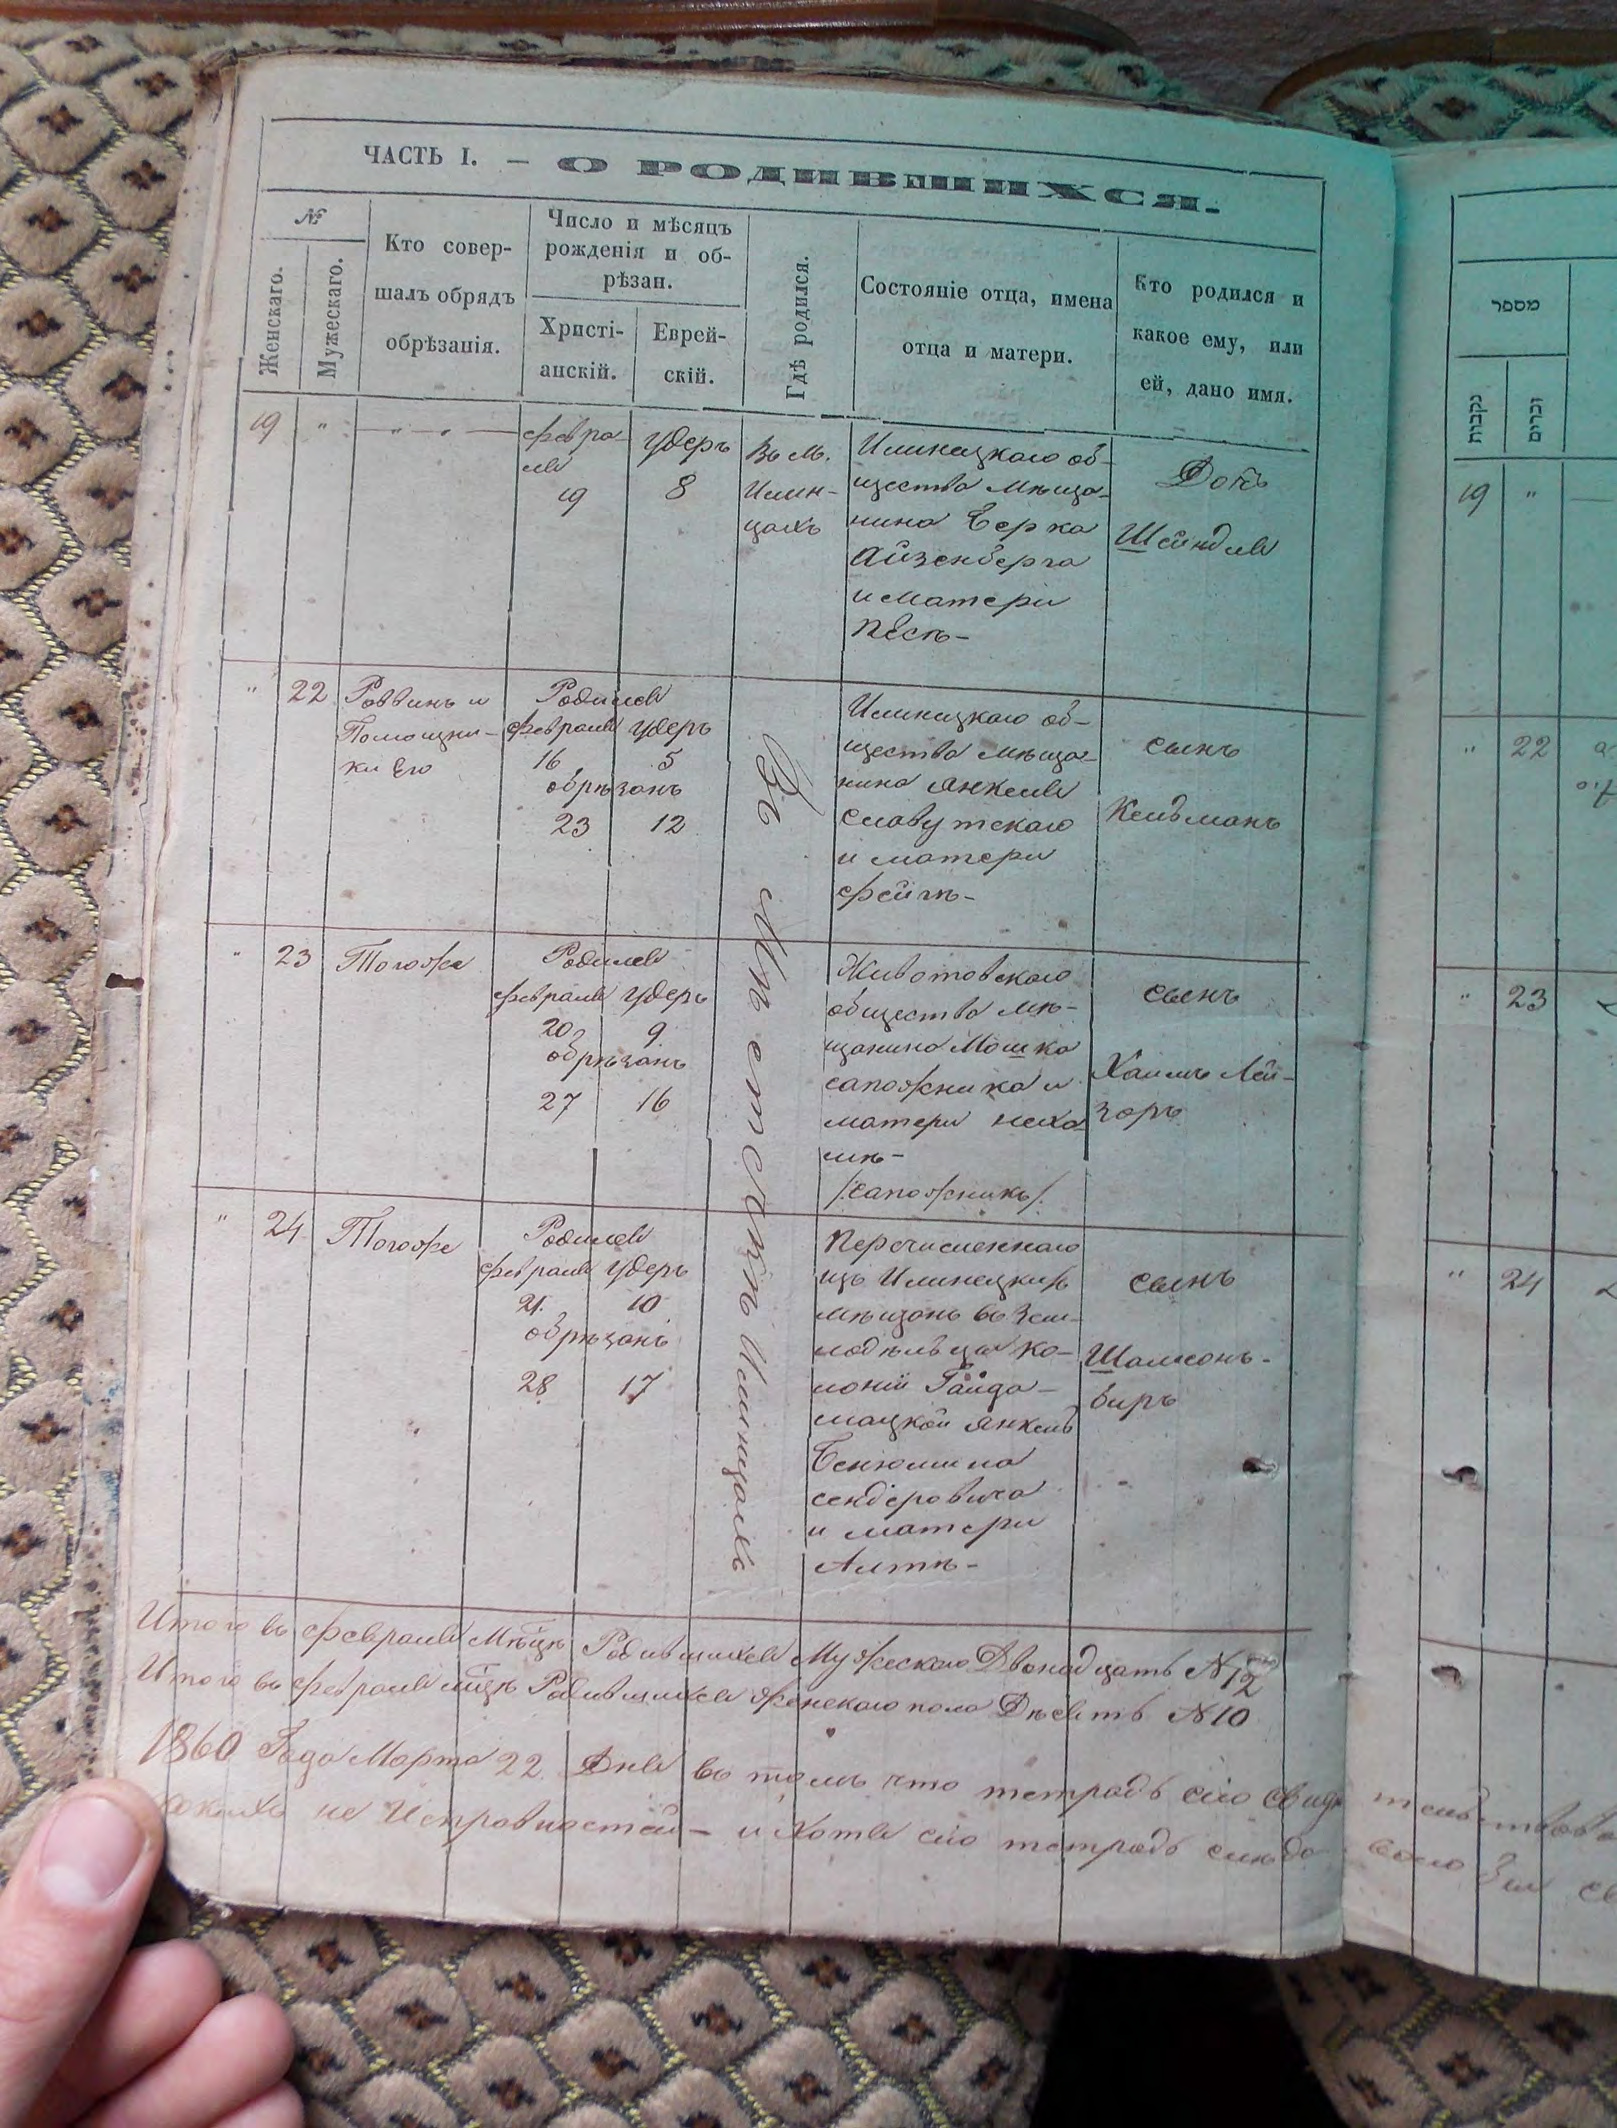 ЧАСТЬ I. — О РОДИВШИХСЯ.
№
Женскаго.
Мужескаго.
Кто совер-
шалъ обрядъ
обрѣзанія.
Число и мѣсяцъ
рожденія и об-
рѣзан.
Христі-
анскій.
Еврей-
скій.
Гдѣ родился.
Состояніе отца, имена
отца и матери.
Кто родился и
какое ему, или
ей, дано имя.
19 " — " — " —
февра-
ля
19
Удеръ
8
Въ м.
Илин-
цахъ
Илинецкаго об-
щества мѣща-
нина Берка
Айзенберга
и матери
Песѣ-
Дочь
Шейндля
" 22
Раввинъ и
Помощни-
ки Его
Родился
февраля Удеръ
16 5
обрѣзанъ
23 12
Илинецкаго об-
щества мѣща-
нина Янкеля
Славутскаго
и матери
Фейгѣ-
сынъ
Кельманъ
" 23
Тогоже
Родился
февраля Удеръ
20 9
обрѣзанъ
27 16
Животовскаго
общества мѣ-
щанина Мошка
сапожника и
матери Неха-
мѣ-
/:сапожникъ/:
сынъ
Хаимъ Лей-
зоръ
" 24
Тогоже
Родился
февраля Удеръ
21. 10
обрѣзанъ
28 17
Перечисленнаго
изъ Илинецкихъ
мѣщанъ въ зем-
лодѣльца ко-
лоніи Гайда-
мацкой Янкель
Бенюмина
Сендеровича
и матери
Алтѣ-
сынъ
Шамсонъ-
биръ
Въ Мѣстечкѣ Илинцахъ
Итого въ Февралѣ Мѣсцѣ Родившихся Мужескаго Двонадцать N12
Итого въ Февралѣ мсцѣ Родившихся женскаго пола Дѣсять N10
1860 Года Марта 22 Дня въ томъ что тетрадь сію
не Исправностей — и Хотя сію тетрадь
מספר
נקבות
זכרים
19 "
" 22
" 23
" 24